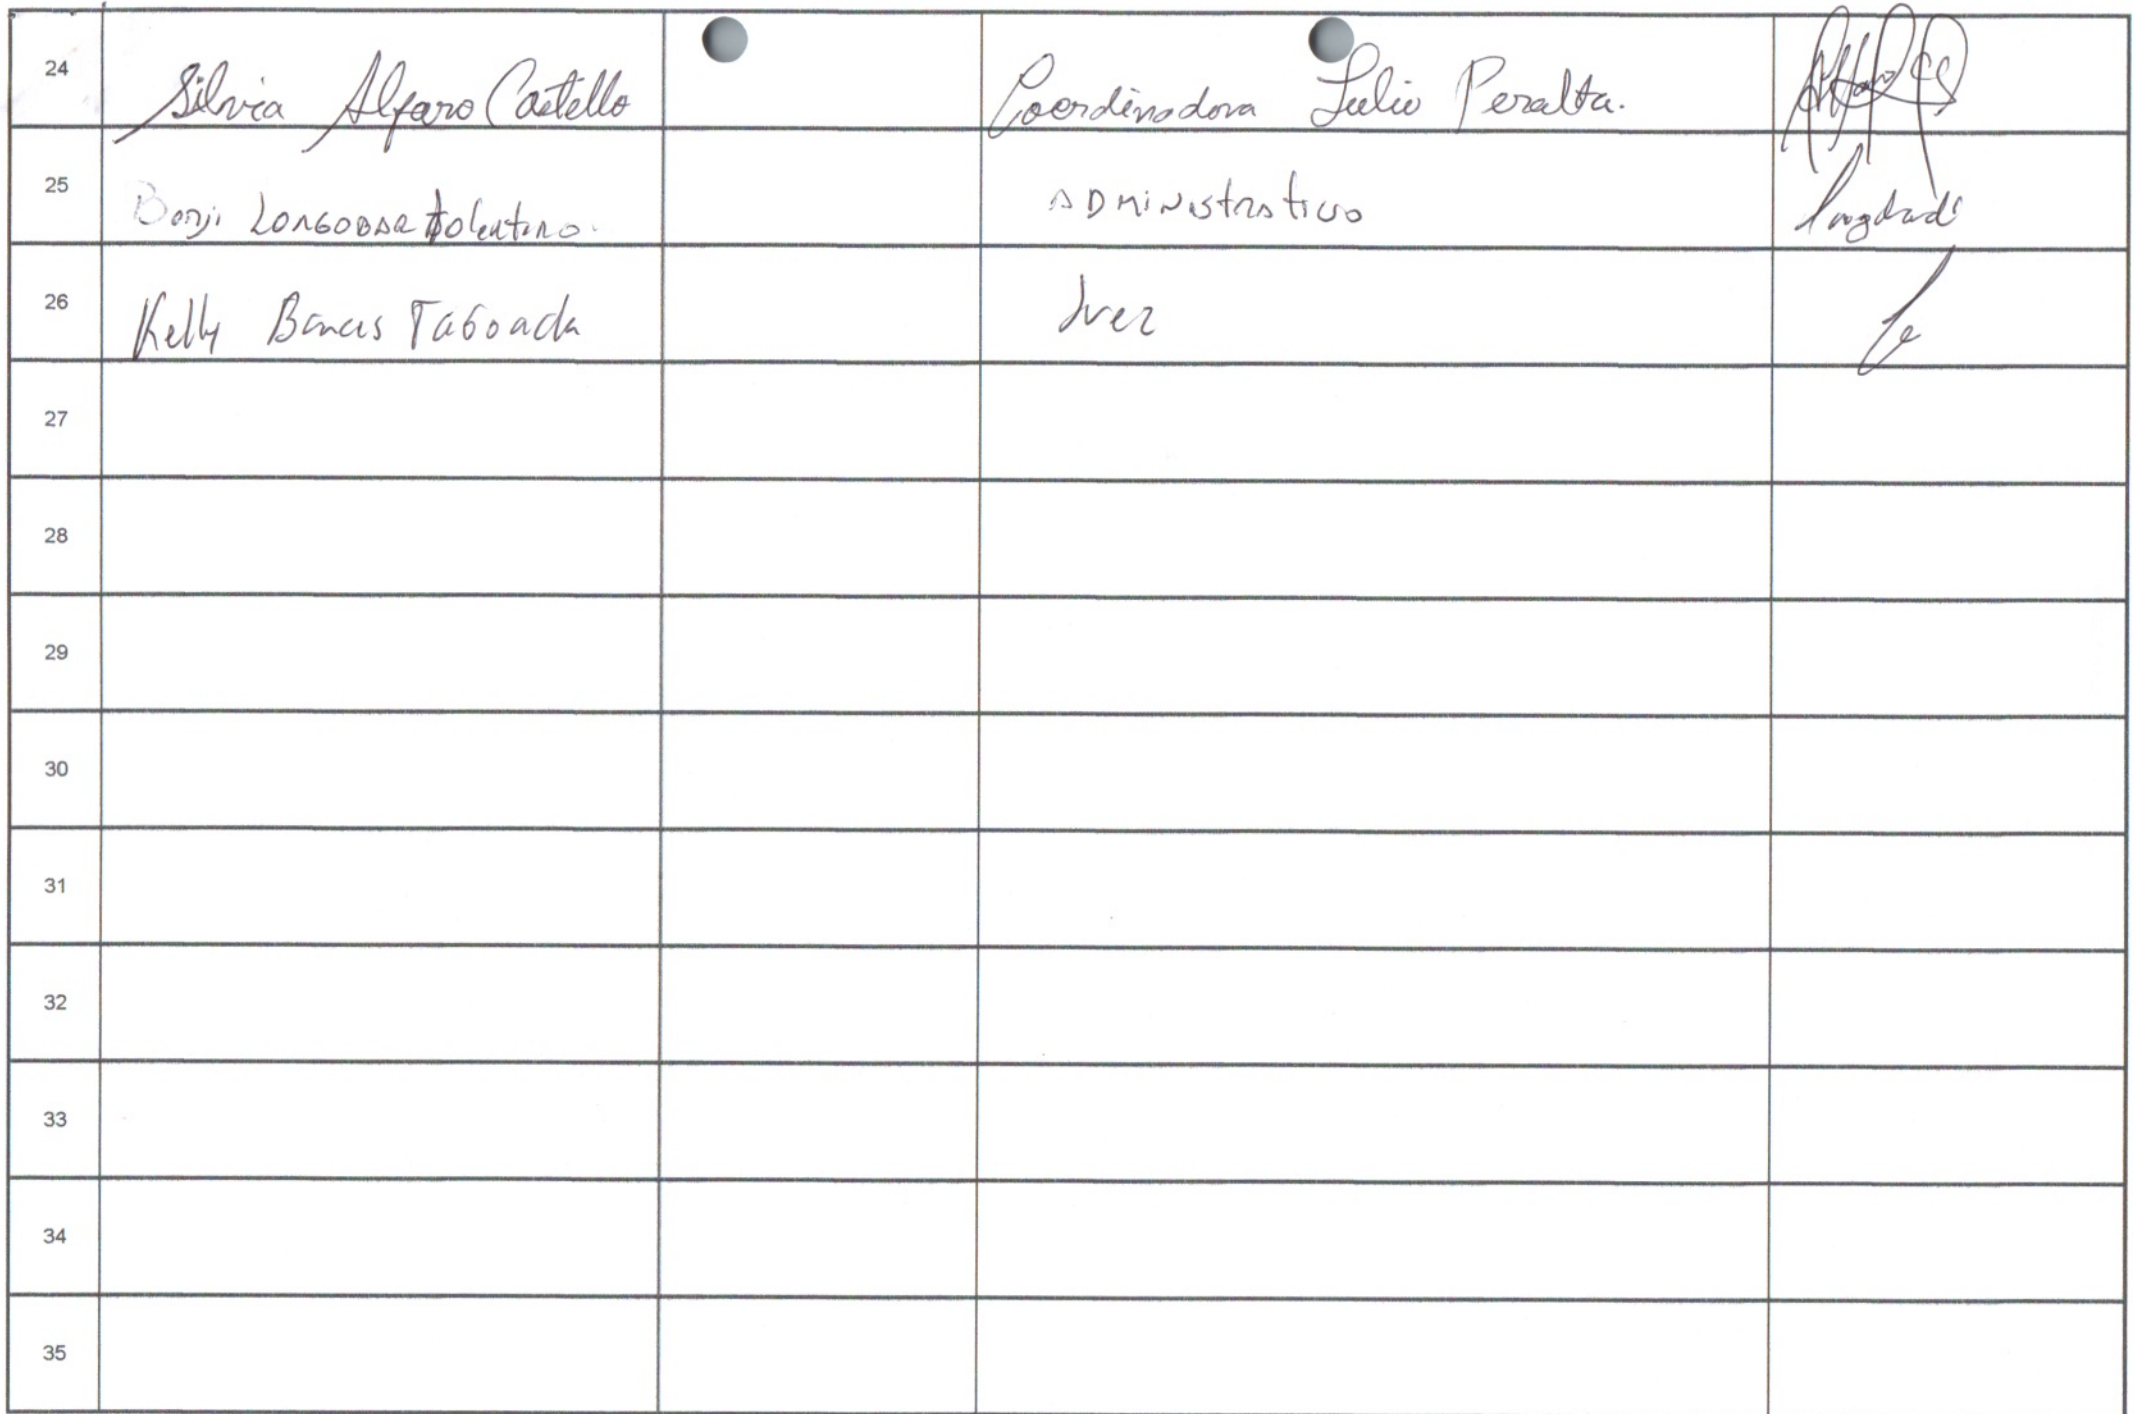 24 Silvia Alfaro Castello Coordinadora Julio Peralta.
25 Benji Longobar Tolentino. ADMINISTRATIVO
26 Kelly Taboada Juez
27
28
29
30
31
32
33
34
35